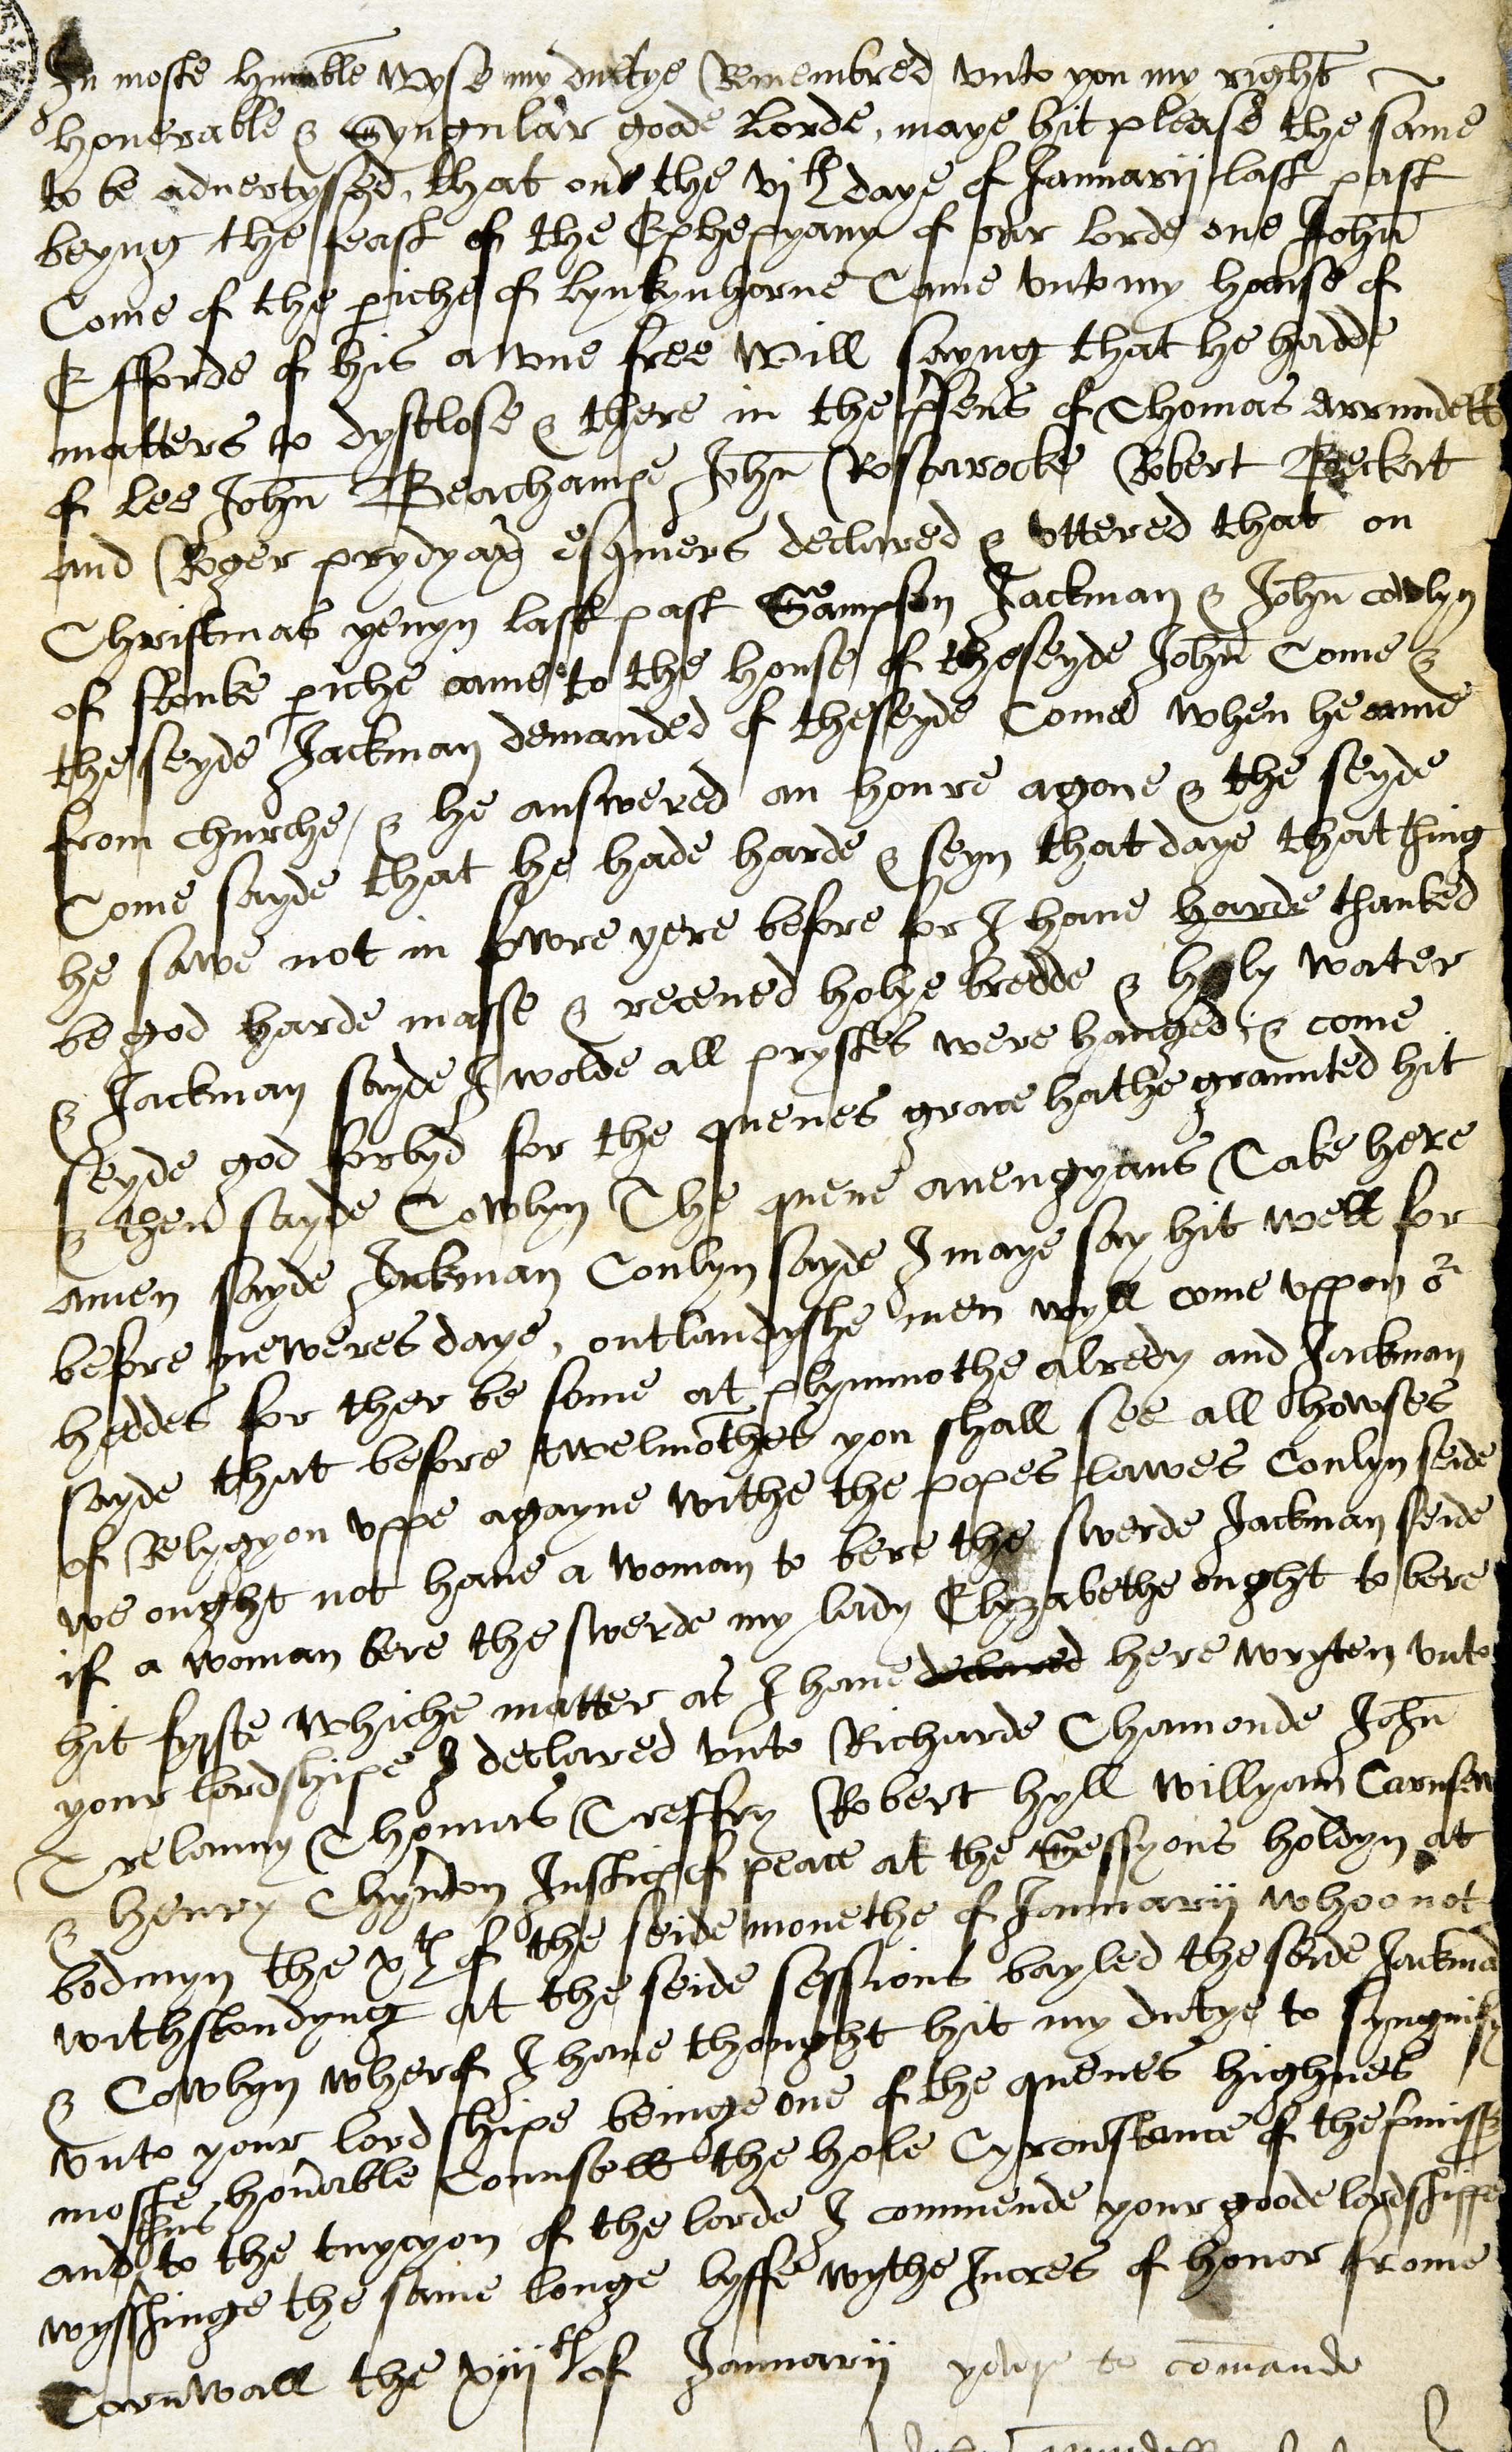 In moste humble wyse my dutye Remembred vnto you my right
honerable & Syngular goode Lorde, maye hit please the same
to be aduertysed, that one the vjth daye of Januarij last past
beyng the feast of the Ephepyany of our lorde one John
Come of the piche of lynkynhorne Came vnto my house of
Efforde of his awne free will sayng that he hadde
matters to dysclose & there in the psens of Thomas Arrundell
of lee John Beachampe John Roscarocke Robert Beckett
and Roger prydyax esquiers declared & vttered that on
Christmas yevyn last past Sampson Jackman & John cowlyn
of stoke piche came to the house of theseyde John Come &
the seyde Jackman demanded of theseyde Come when he came
from churche, & he answered an houre agone & the seyde
Come sayde that he hade harde & seyn that daye that thing
he sawe not in fowre yere before for I haue harde thanked
be god harde masse & receued holye bredde & holy water
& Jackman sayde I wolde all prystes were hanged, & come
seyde god forbyd for the quenes grace hathe graunted hit
& then sayde Cowlyn The quene avengyans Take here
amen sayde Jackman Coulyn sayde I maye say hit well for
before neweres daye, outlandyshe men wyll come vppon or
heddes for ther be some at plymmothe alredy and Jackman
sayde that before twelmothes you shall see all howses
of Relygyon vppe agayne withe the popes lawes Coulyn seide
we ought not haue a woman to bere the swerde Jackman seide
if a woman bere the swerde my lady Elyzabethe ought to bere
hit fyrste whiche matter as I haue declared here wryten vnto
your lordshipe I declared vnto Richarde Chamonde John
Trelauny Thomas Treffry Robert hyll willyam Carnsew
& henry Chynton Justic of peace at the Sessyons holdyn at
bodmyn the xth of the seide monethe of Januarij whoo not
withstondyng at the seide sessions bayled the seide Jackman
& Cowlyn wherof I haue thought hit my dutye to syngnify
vnto your lordshipe beinge one of the quenes highnes
moste honable Counsell the hole Cyrcustance of the pmiss
and thus to the tuycyon of the lorde I commende your goode lordshippe
wysshinge the same longe lyffe wythe Incres of honor frome
Cornwall the xiijth of Januarij yours to comande